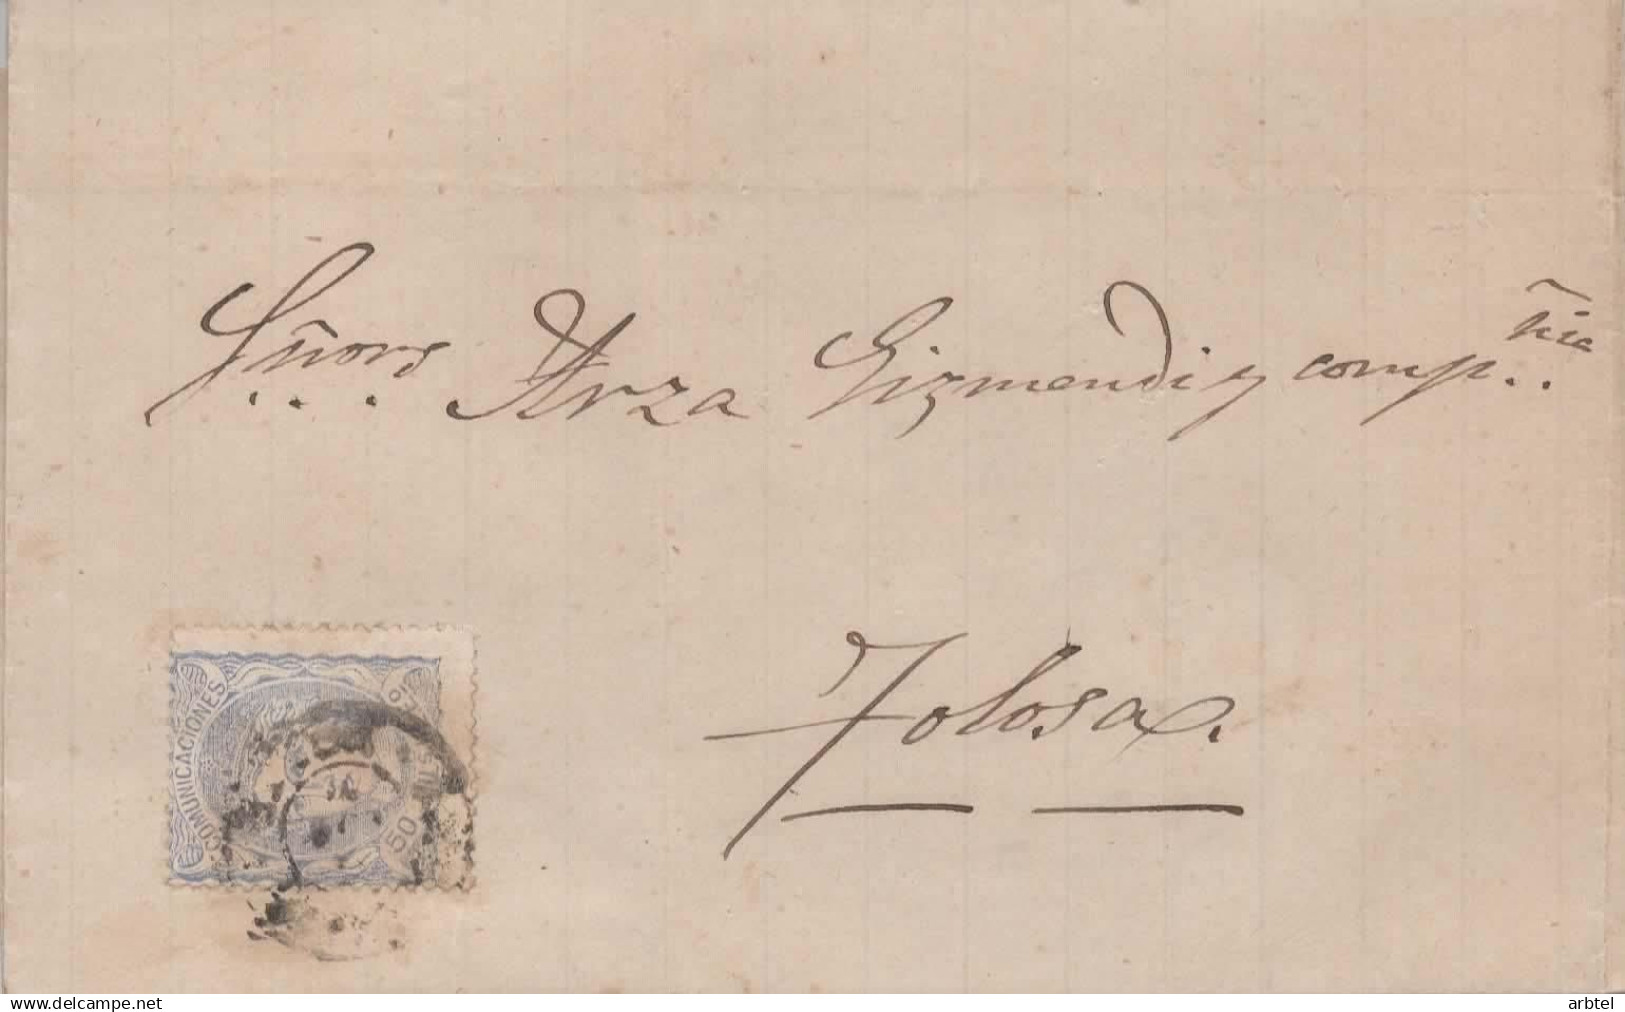 Señors Arza Gizmendi y comp..ñia
Tolosa.
COMUNICACIONES
50 MILS
www.delcampe.net
arbtel